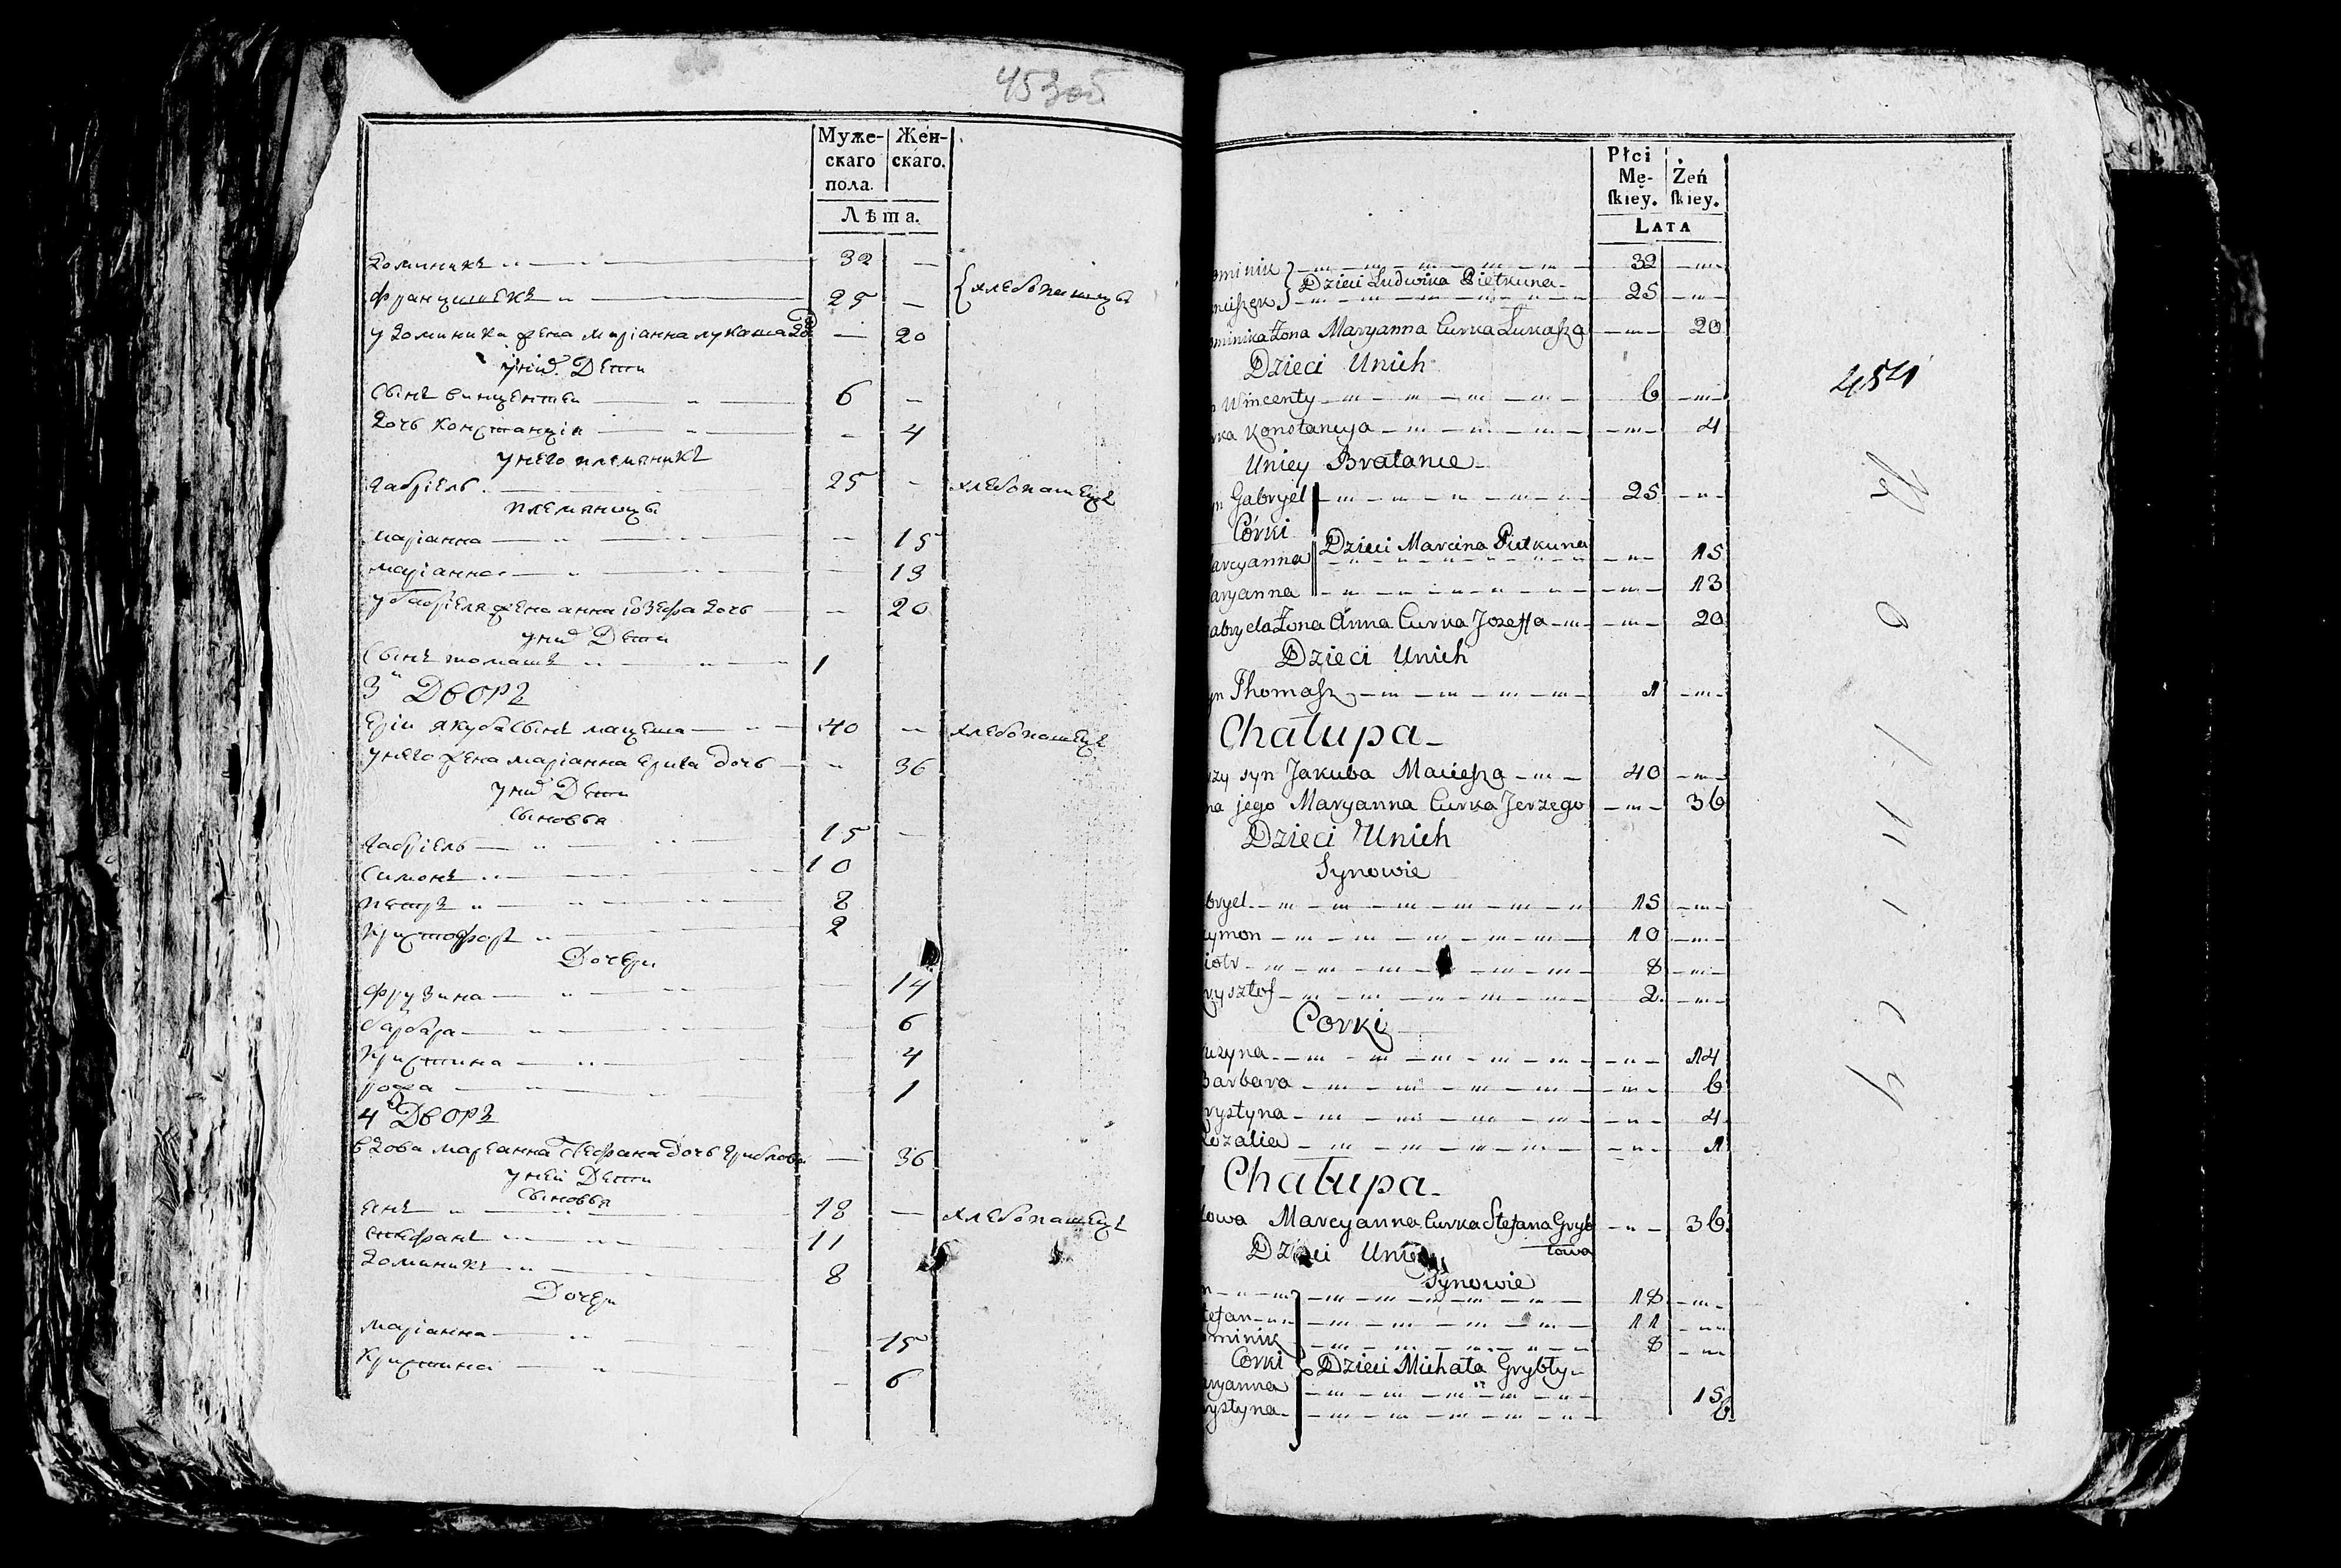 453об
Муже- Жен-
скаго скаго.
пола.
Лѣта.
Доминикъ 32 —
Францишекъ 25 — хлебопашцы
у Доминика жена Маріанна Лукаша Дочь — 20
у нихъ Дети
Сынъ Винцентеи 6 —
Дочь Констанція — 4
у него племяникъ
Габріель 25 — хлебопашецъ
племяницы
Маріанна — 15
Маріанна — 13
у Габріеля жена Анна Юзефа Дочь — 20
у нихъ Дети
Сынъ Томашъ 1
3й Дворъ
Ерiи Якуба Сынъ Мацеша 40 — хлебопашецъ
у него жена Маріанна Ерiева Дочь — 36
у нихъ Дети
Сыновья
Габріель 15 —
Симонъ 10
Петръ 8
Криштофоръ 2
Дочери
Фрузина — 14
Барбара — 6
Криштина — 4
Рожа — 1
4й Дворъ
Вдова Маріанна Стефана Дочь Гриблова — 36
у ней Дети
Сыновья
Янъ 18 — хлебопашецъ
Стефанъ 11
Доминикъ 8
Дочери
Маріанна — 15
Криштина — 6
Płci
Mę- Żeń
skiey. skiey.
LATA
ominik 32
Dzieci Ludwika Pietkuna
ciszek 25
ominika Żona Maryanna Curka Łukasza 20
Dzieci Unich
454
n Wincenty 6
rka Konstancya 4
Uniey Bratanie
yn Gabryel 25
Córki
Dzieci Marcina Pietkuna
arcyanna 15
aryanna 13
abryela Żona Anna Curka Jozeffa 20
Dzieci Unich
yn Thomasz 1
Chałupa
rzy syn Jakuba Maciesza 40
na jego Maryanna Curka Jerzego 36
Dzieci Unich
Synowie
bryel 15
zymon 10
iotr 8
rysztof 2
Corki
uzyna 14
Barbara 6
rystyna 4
Rozalia 1
Chałupa
dowa Marcyanna Curka Stefana Gryb 36
łowa
Dzieci Uniey
Synowie
n 18
tefan 11
minik 8
Corki Dzieci Michała Grybły
aryanna 15
ystyna 6